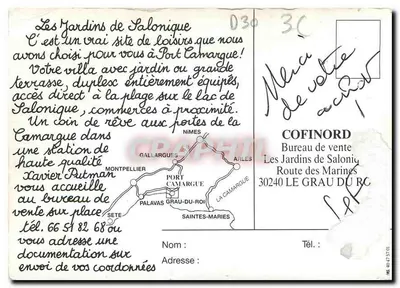 Les Jardins de Salonique
C'est un vrai site de loisirs que nous
avons choisi pour vous à Port Camargue!
Votre villa avec jardin ou grande
terrasse, duplex entièrement équipés,
accès direct à la plage sur le lac de
Salonique, commerces à proximité.
Un coin de rêve aux portes de la
Camargue dans
une station de
haute qualité
Xavier Putman
vous accueille
au bureau de
vente sur place
tél. 66 51 82 68 ou
vous adresse une
documentation sur
envoi de vos coordonnées
D30
3C
Merci
de votre
NIMES
GALLARGUES
ARLES
MONTPELLIER
PORT
CAMARGUE
LA CAMARGUE
GRAU-DU-ROI
PALAVAS
SETE
SAINTES-MARIES
COFINORD
Bureau de vente
Les Jardins de Saloni
Route des Marines
30240 LE GRAU DU RO
Nom :
Tél. :
Adresse :